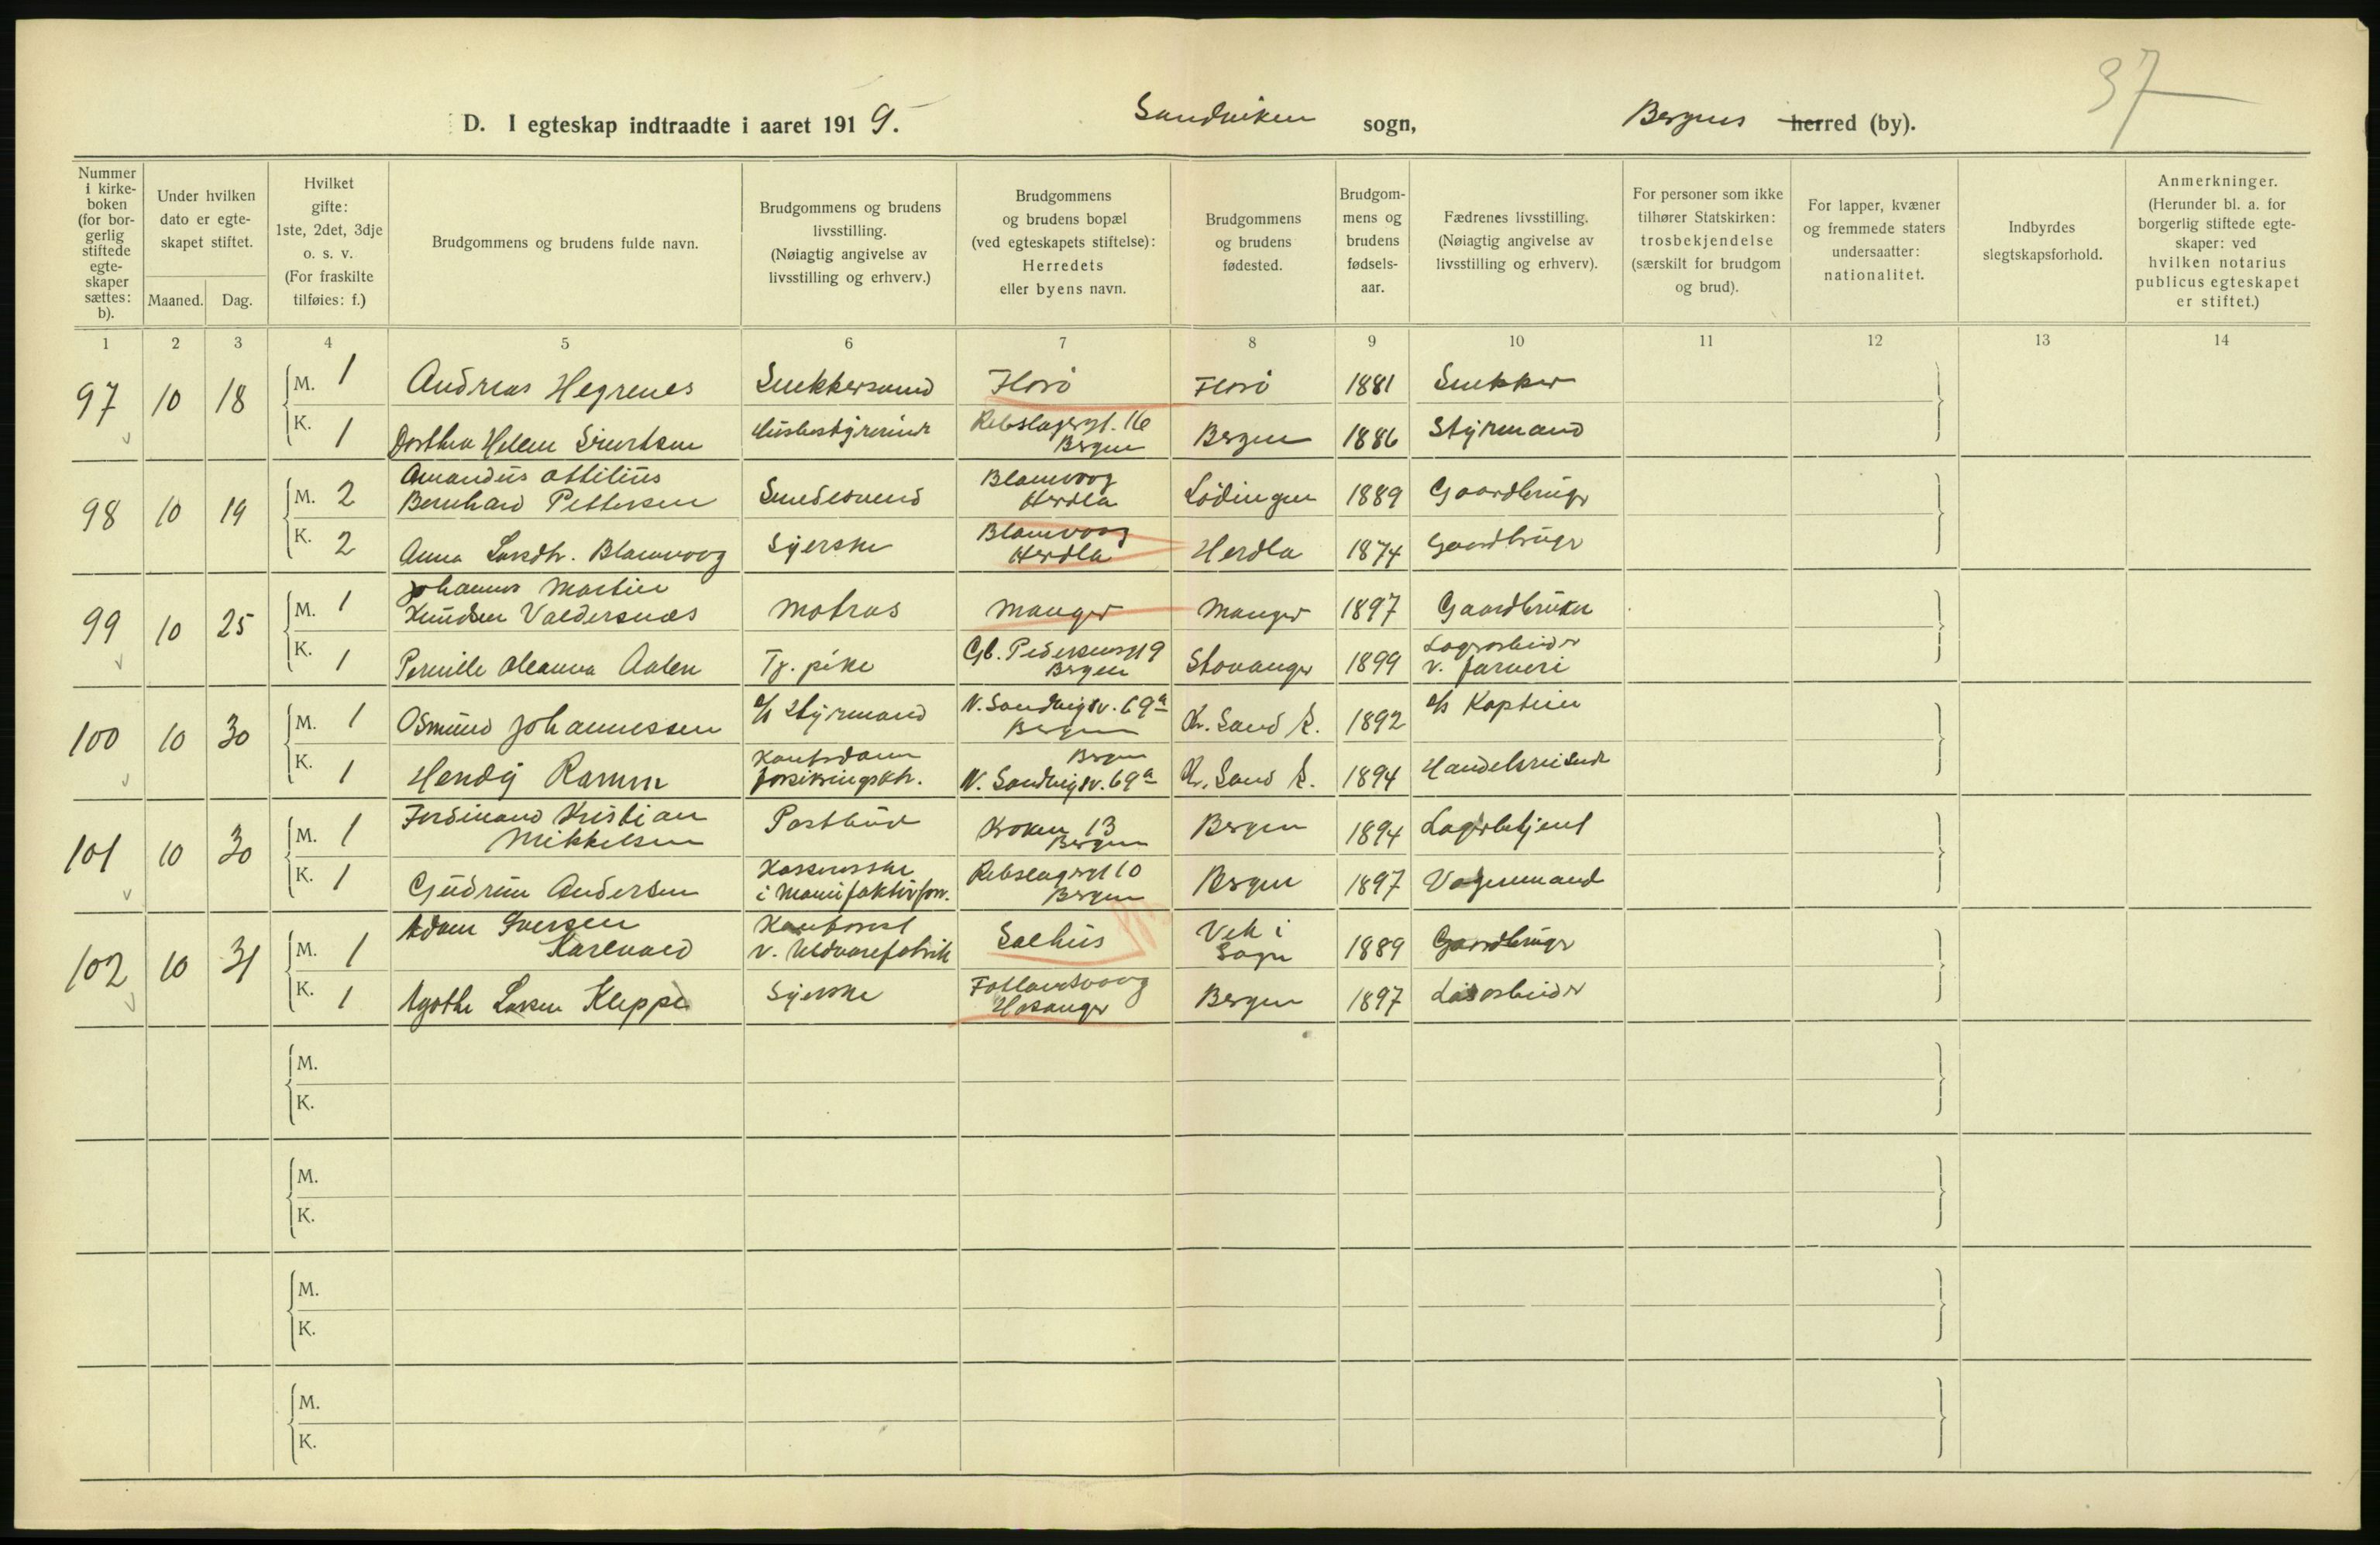 37
D. I egteskap indtraadte i aaret 1919. Sandviken sogn, Bergens herred (by).
Nummer i kirkeboken (for borgerlig stiftede egteskaper sættes: b).
Under hvilken dato er egteskapet stiftet.
Maaned. Dag.
Hvilket gifte: 1ste, 2det, 3dje o. s. v. (For fraskilte tilføies: f.)
Brudgommens og brudens fulde navn.
Brudgommens og brudens livsstilling. (Nøiagtig angivelse av livsstilling og erhverv.)
Brudgommens og brudens bopæl (ved egteskapets stiftelse): Herredets eller byens navn.
Brudgommens og brudens fødested.
Brudgommens og brudens fødselsaar.
Fædrenes livsstilling. (Nøiagtig angivelse av livsstilling og erhverv).
For personer som ikke tilhører Statskirken: trosbekjendelse (særskilt for brudgom og brud).
For lapper, kvæner og fremmede staters undersaatter: nationalitet.
Indbyrdes slegtskapsforhold.
Anmerkninger. (Herunder bl. a. for borgerlig stiftede egteskaper: ved hvilken notarius publicus egteskapet er stiftet.)
1 2 3 4 5 6 7 8 9 10 11 12 13 14
97 10 18 M. 1 Andreas Hegrenes Snekkersvend Florö Florö 1881 Snekker
K. 1 Dorthea Helene Sivertsen Husbestyrerinde Rebslagergt. 16 Bergen Bergen 1886 Styrmand
98 10 19 M. 2 Amandus Attilius Bernhard Pettersen Smedesvend Blamvaag Herdla Lödingen 1889 Gaardbruger
K. 2 Anna Larsdtr. Blamvaag Syerske Blamvaag Herdla Herdla 1874 Gaardbruger
99 10 25 M. 1 Johannes Martin Knudsen Valdersnæs Matros Manger Manger 1897 Gaardbruker
K. 1 Pernille Oleanna Aalen Tj. pike Gl. Pedersensgt 9 Bergen Stavanger 1899 Lagerarbeider v. farveri
100 10 30 M. 1 Osmund Johannessen d/s Styrmand N. Sandvigsv. 69a Bergen Kr. Sand S. 1892 d/s Kaptein
K. 1 Hendy Ramm Kontordame forsikringsktr. Bergen N. Sandvigsv. 69a Kr. Sand S. 1894 Handelsreisende
101 10 30 M. 1 Ferdinand Kristian Mikkelsen Postbud Kroken 13 Bergen Bergen 1894 Lagerbetjent
K. 1 Gudrun Andersen Kassererske i Manufakturforr. Rebslagergt 10 Bergen Bergen 1897 Vognmand
102 10 31 M. 1 Adam Iversen Karevold Kontorist v. Uldvarefabrik Salhus Vik i Sogn 1889 Gaardbruger
K. 1 Agathe Larsen Kleppe Syerske Fotlandsvaag Hosanger Bergen 1897 Løsarbeider
M.
K.
M.
K.
M.
K.
M.
K.